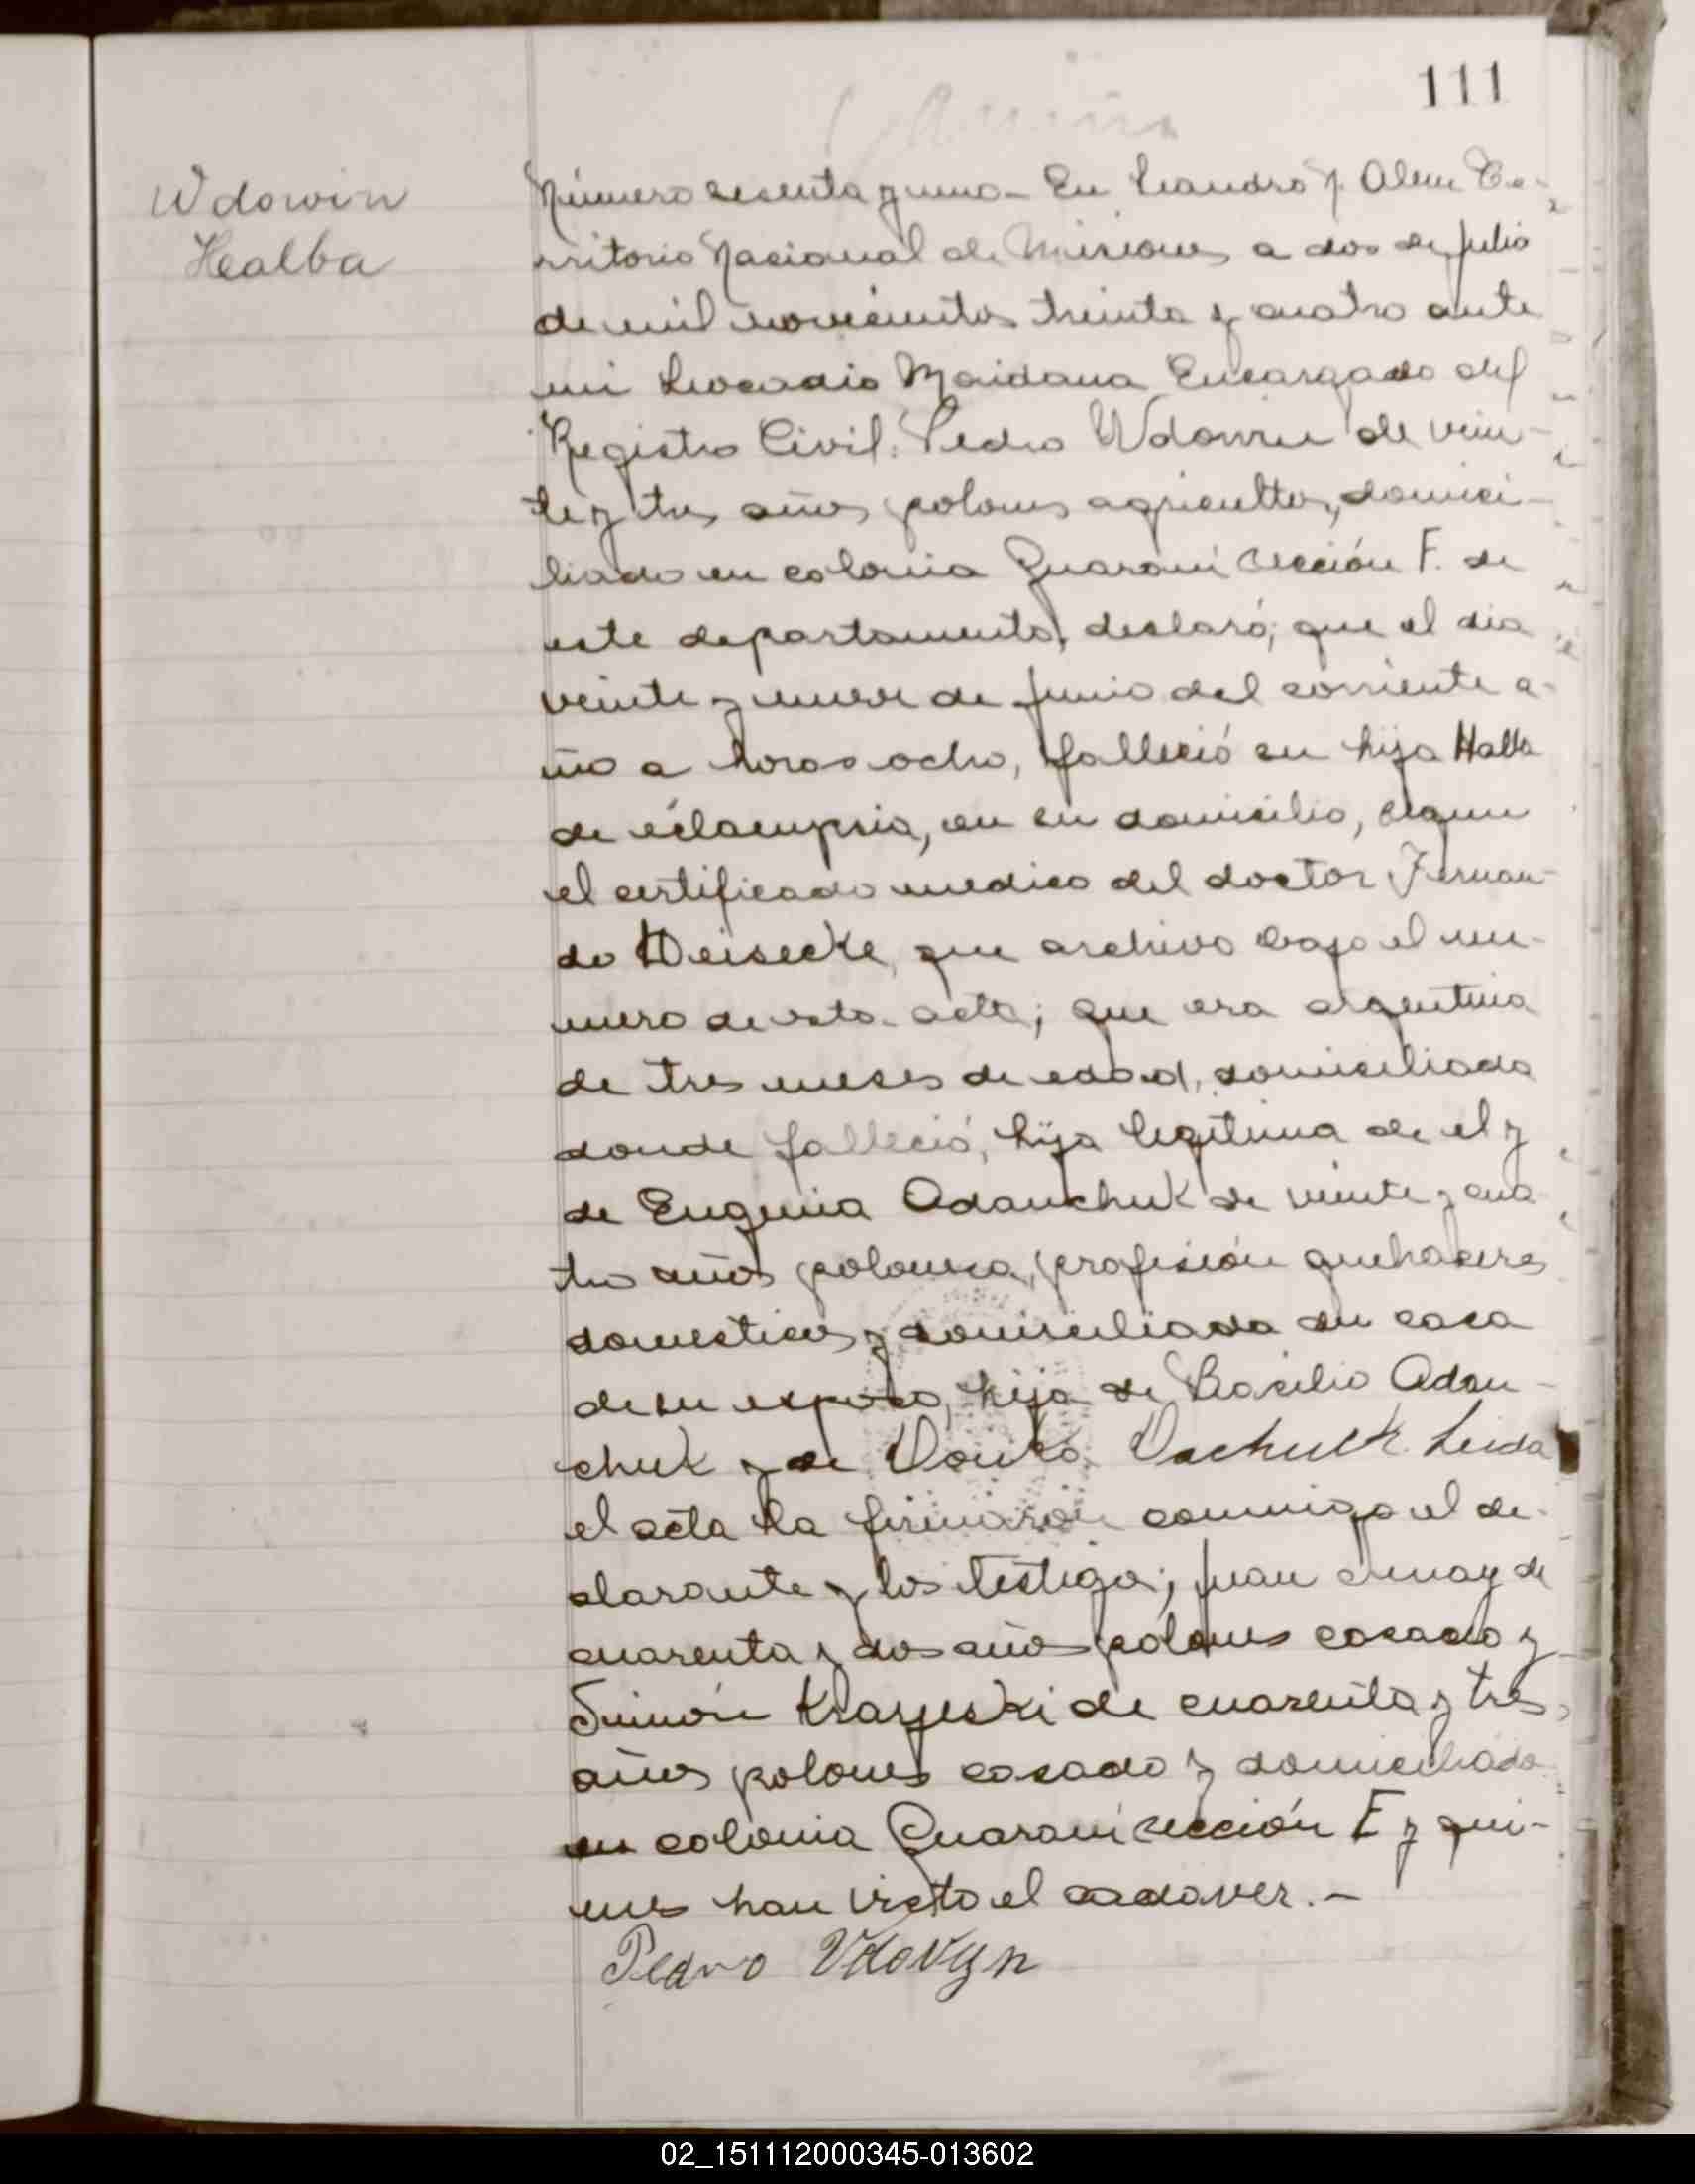 111
Wdowin
Healba
Número sesenta y uno - En Leandro N. Alem Te-
rritorio Nacional de Misiones a dos de julio
de mil novecientos treinta y cuatro ante
mi Leocadio Maidana Encargado del
Registro Civil: Pedro Wdowin de vein-
te y tres años polones agricultor, domici-
liado en colonia Guaraní sección F. de
este departamento, declaró; que el dia
veinte y nueve de junio del corriente a-
ño a horas ocho, falleció su hija Halba
de eclampsia, en su domicilio, segun
el certificado medico del doctor Fernan-
do Weisecke, que archivo bajo el nu-
mero de esta acta; que era argentina
de tres meses de edad, domiciliada
donde falleció, hija legitima de el y
de Eugenia Adanchuk de veinte y cua-
tro años polonesa, profesión quehaceres
domesticos y domiciliada en casa
de su esposo, hija de Basilio Adan-
chuk y de Donka Dachuk. Leida
el acta la firmaron conmigo el de-
clarante y los testigos; Juan de
cuarenta y dos años polones casado y
Simón Krayeski de cuarenta y tres
años polones casado y domiciliado
en colonia Guaraní sección F y qui-
enes han visto el cadaver. -
Pedro Vdovyn
02_151112000345-013602